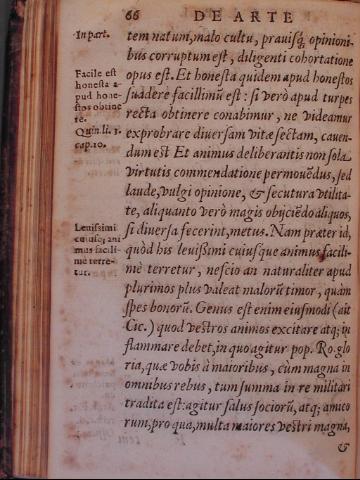 66 DE ARTE
In part.
tem natum, malo cultu, prauisq́; opinioni-
bus corruptum est, diligenti cohortatione
Facile est
honesta a-
pud hone-
stos obtine
re.
opus est. Et honesta quidem apud honestos
suadere facillimũ est: si verò apud turpes
recta obtinere conabimur, ne videamur
Quin. li. 3.
cap. 10.
exprobrare diuersam vitæ sectam, cauen-
dum est Et animus deliberantis non sola
virtutis commendatione permouẽdus, sed
laude, vulgi opinione, & secutura vtilita-
te, aliquanto verò magis obijciẽdo aliquos,
Leuissimi
cuiusq; ani
mus facili-
mè terre-
tur.
si diuersa fecerint, metus. Nam præter id,
quòd his leuißimi cuiusque animus facili-
mè terretur, nescio an naturaliter apud
plurimos plus valeat malorũ timor, quàm
spes bonorũ. Genus est enim eiusmodi (ait
Cic.) quod vestros animos excitare atq; in
flammare debet, in quo agitur pop. Ro. glo
ria, quæ vobis à maioribus, cùm magna in
omnibus rebus, tum summa in re militari
tradita est: agitur salus sociorũ, atq; amico
rum, pro qua, multa maiores vestri magna,
&